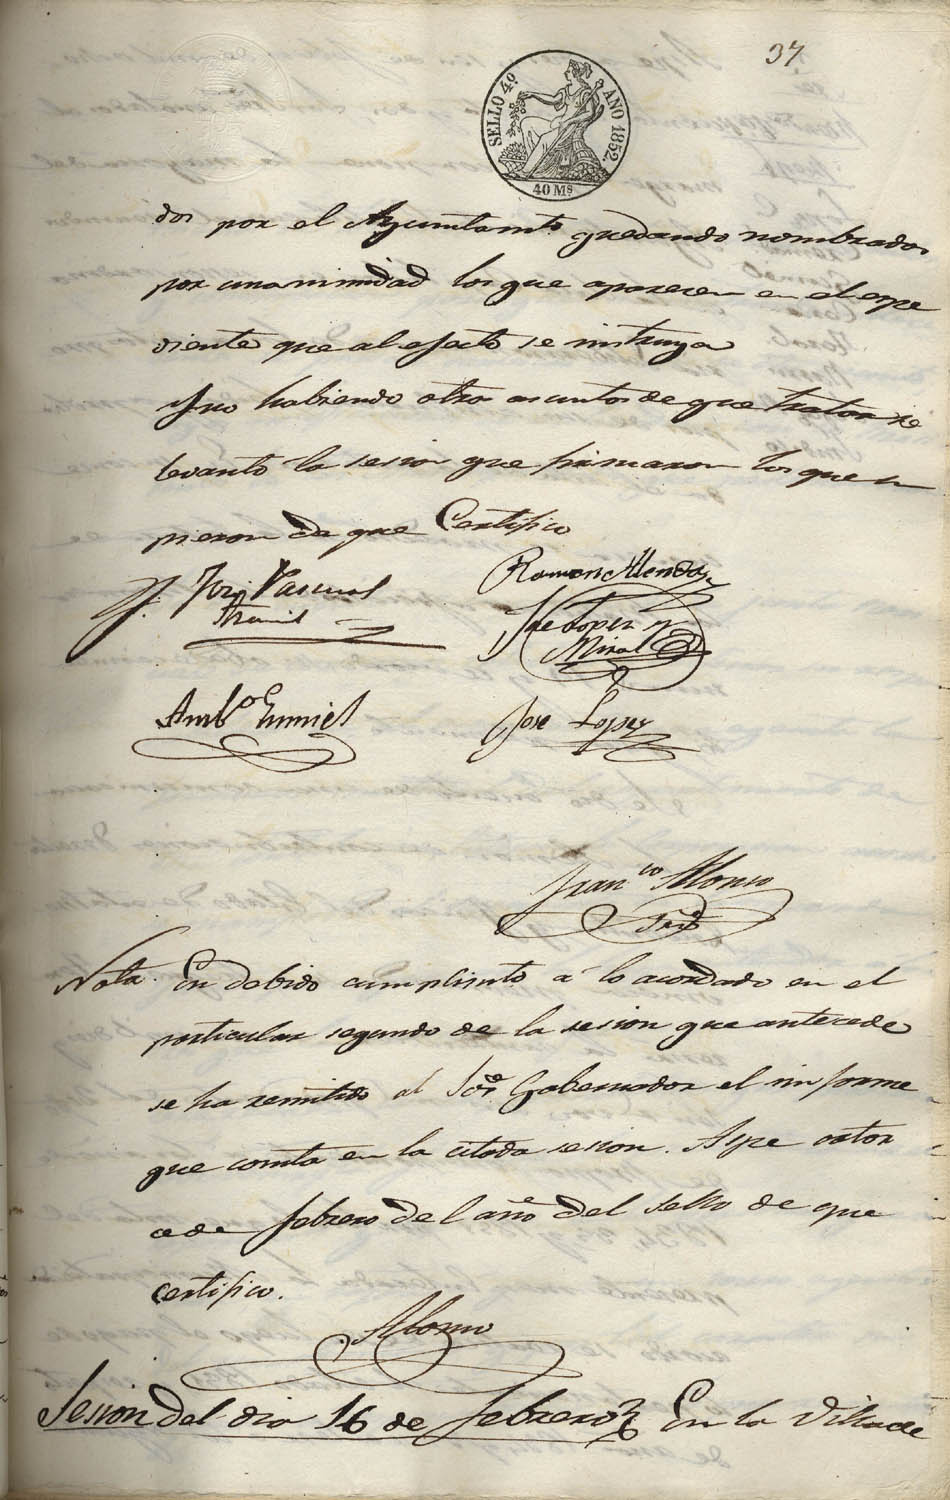 37
SELLO 4º. AÑO 1852.
40 Ms
dos por el Ayuntamto. quedando nombrados
por unanimidad los que aparecen en el expe
diente que al efecto se instruya
Y no habiendo otro asuntos de que tratar se
levantó la sesion que firmaron los que su
pieron de que Certifico
José Pascual
Ramon Alendas
Jose Lopez y
Miral
Ambo. Gumiel
Jose Lopez
Franco. Alonso
Srio
Nota. En debido cumplimto a lo acordado en el
particular segundo de la sesion que antecede
se ha remitido al Sor. Gobernador el informe
que consta en la citada sesion. Aspe cator
ce de febrero del año del sello de que
certifico.
Alonso
Sesion del dia 16 de febrero En la Villa de